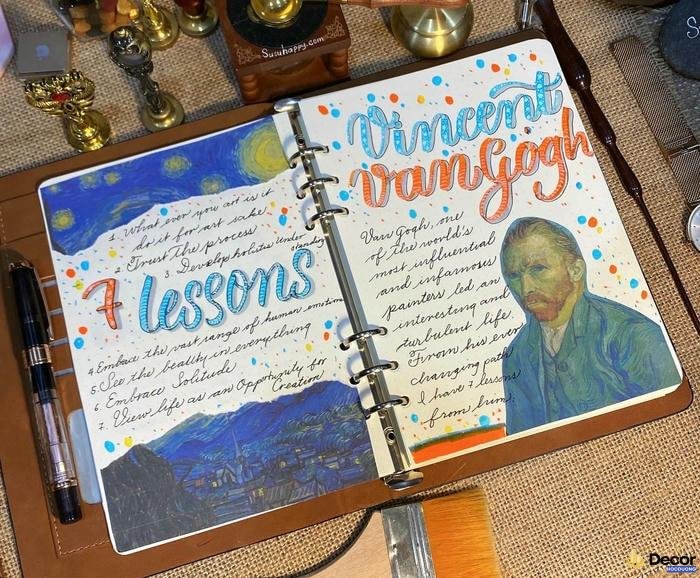 Susuhappy.com
1. What ever you art is it
do it for art sake
2. Trust the process
3. Develop holistic under
standing
7 lessons
4. Embace the vast range of human emotions
5. See the beauty in everything
6. Embrace Solitude
7. View life as an Opportunity for
Creation
Vincent
van Gogh
Van Gogh, one
of the world's
most influential
and infamous
painters led an
interesting and
turbulent life.
From his ever
changing path
I have 7 lessons
from him.
S
Decor
HOCDUONG